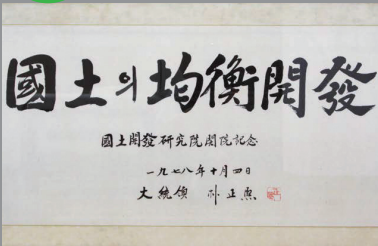 國土의 均衡開發
國土開發研究院開院記念
一九七八年十月四日
大統領 朴正熙